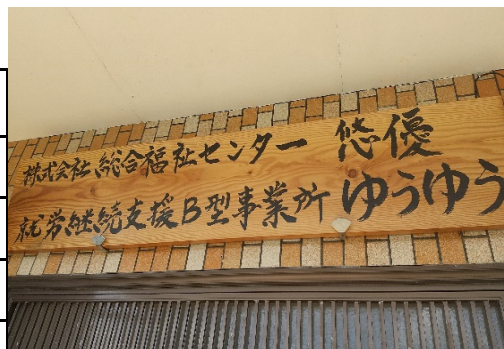 株式会社 総合福祉センター 悠優
就労継続支援B型事業所 ゆうゆう